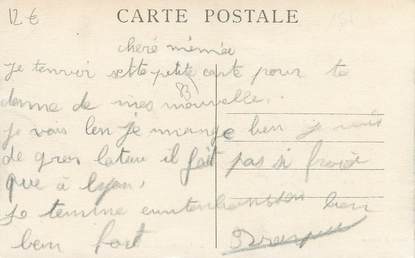 12€
CARTE POSTALE
cheré mémée
je tenvoi sette petite carte pour te
donne de mes nouvelle.
je vais ben je mange ben je
de gros il fait pas si froid
que à Lyon,
je temine bien
ben fort